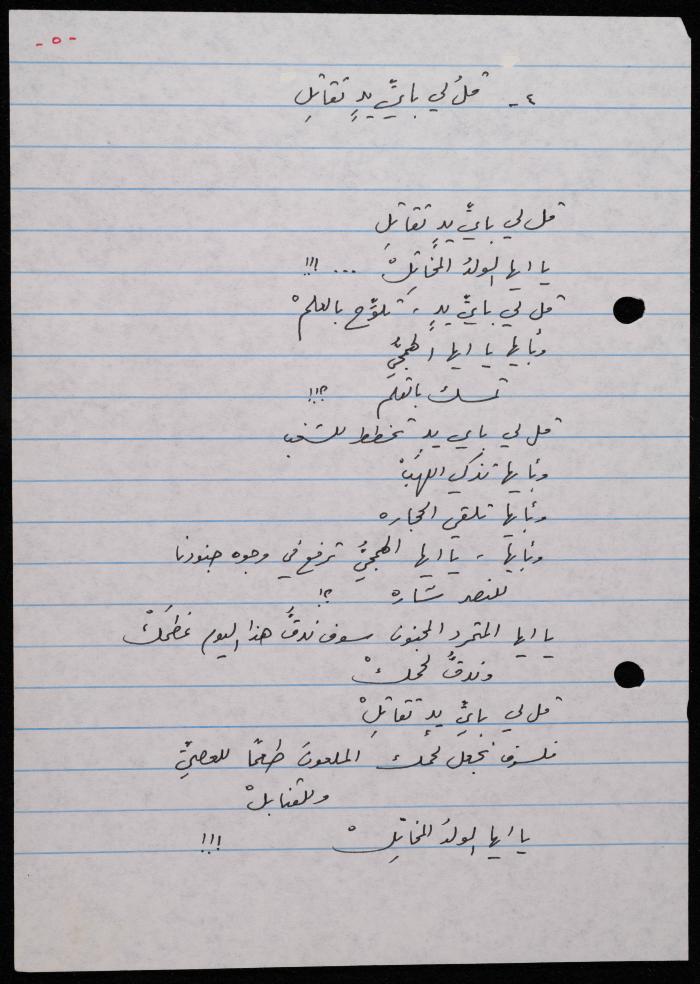 - ٥ -
٤ - قلْ لي بأيِّ يدٍ تقاتلِ
قل لي بايِّ يدٍ تقاتلِ
يا ايها الولدُ المخَاتِلْ ... !!!
قل لي بايِّ يدٍ ، تلوِّح بالعلمْ
وبأيها يا ايها الهمجيُّ
تمسك بالقلم ؟!!
قل لي باي يد تخطط للشغب
وبأيها تذكي اللهَبْ
وبأيها تلقي الحجاره
وبأيها ، يا ايها الهمجيُّ ترفع في وجوه جنودنا
للنصر شاره ؟!
يا ايها المتمرد المجنون سوف ندقُّ هذا اليوم عَظمَكْ
وندقُّ لحمكْ
قل لي بايِّ يدٍ تقاتلْ
فلسوف نجعل لحمك الملعونَ طعمًا للعصيِّ
وللقنابلْ
يا ايها الولدُ المخاتِلْ !!!